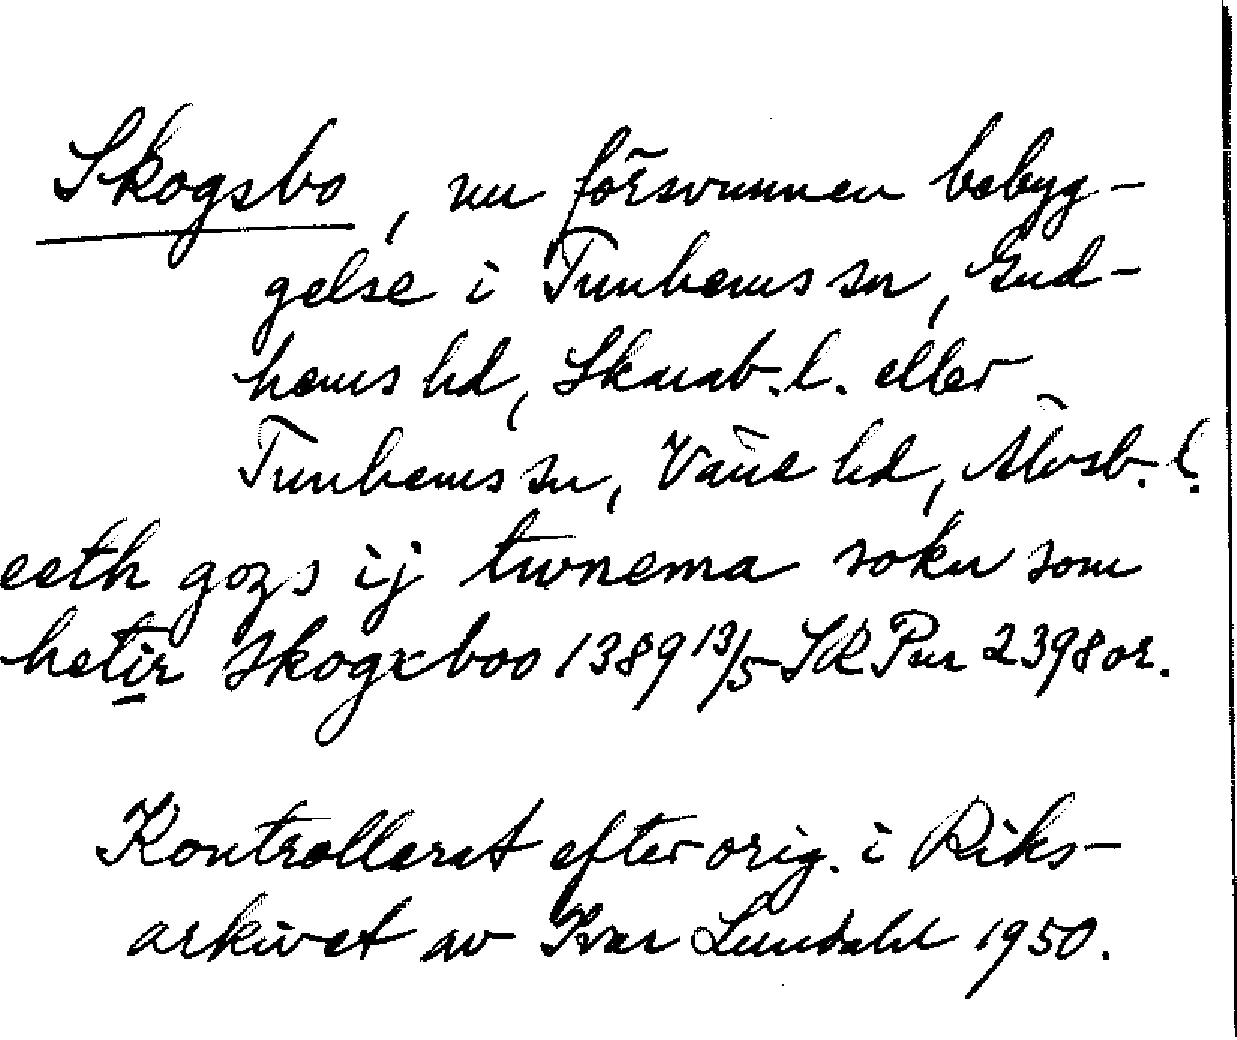 Skogsbo, nu försvunnen bebyg-
gelse i Tunhems sn, Gud-
hems hd, Skarab. l. eller
Tunhems sn, Väne hd, Älvsb. l.
eeth gozs ij twnema sokn som
hetir Skogxboo 1389 13/5 SRP nr 2398 or.
Kontrollerat efter orig. i Riks-
arkivet av Ivar Lundahl 1950.